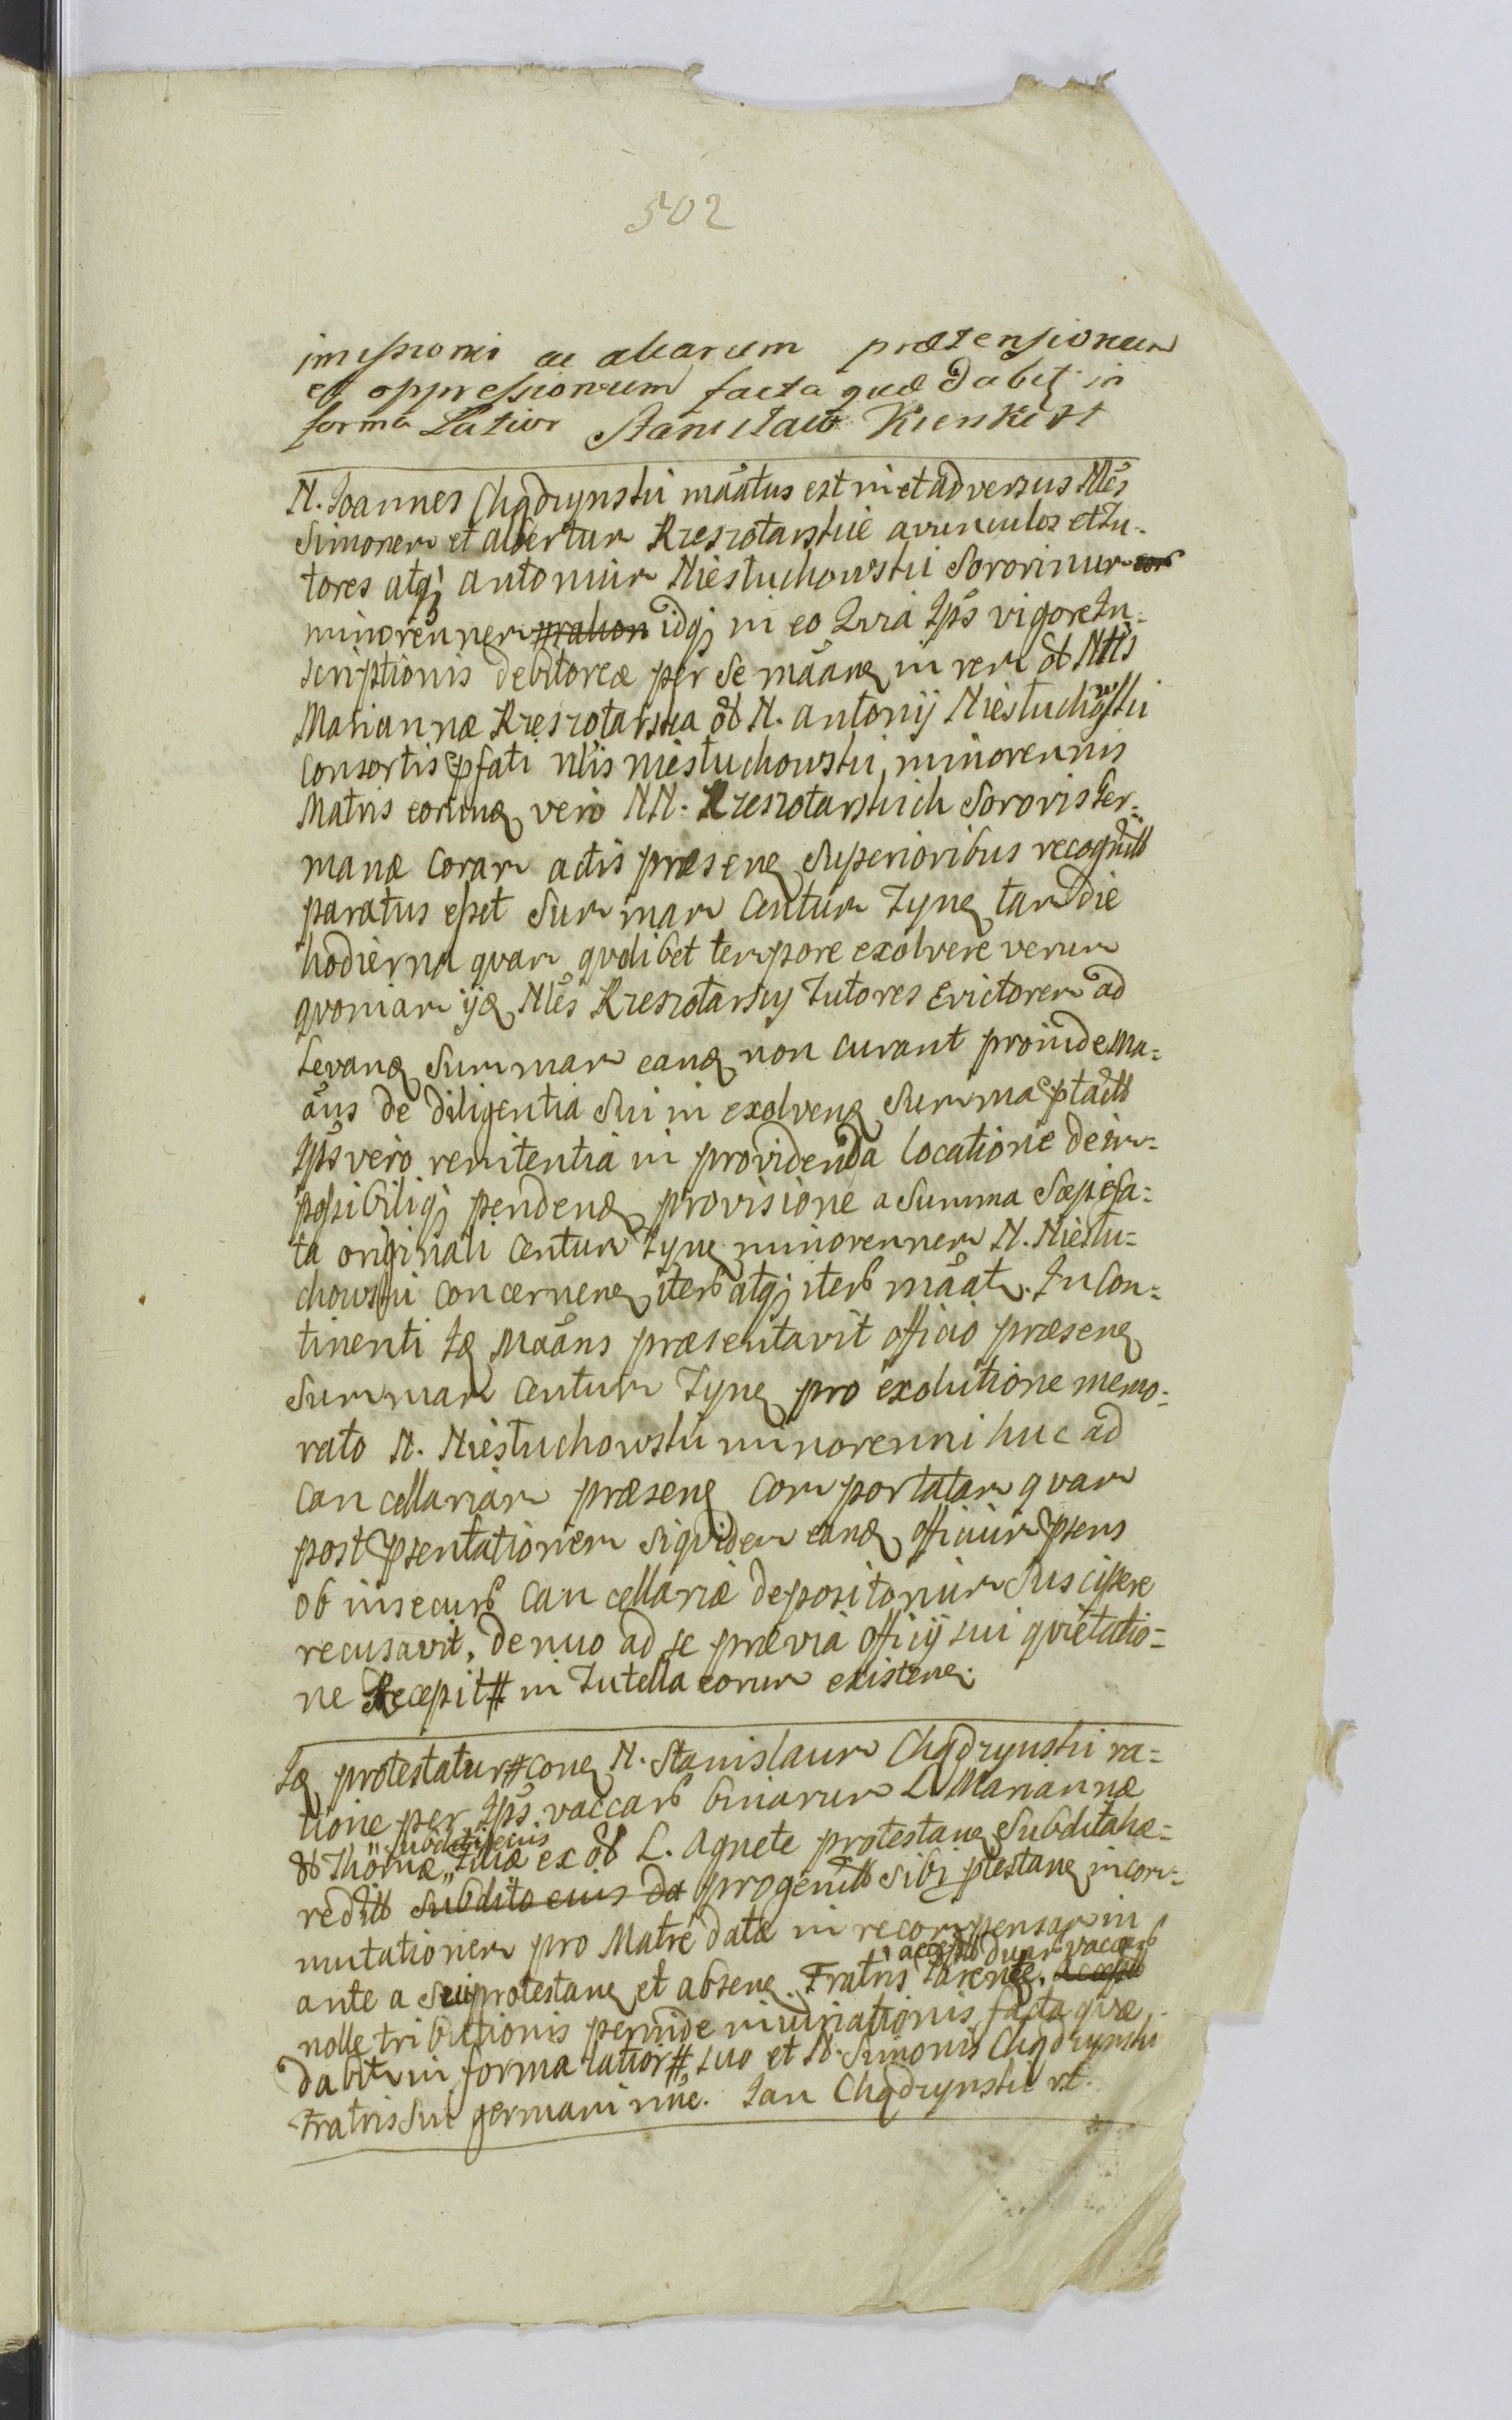 502
imissionis ac aliarum prætensionum
et oppressionum facta quæ dabit in
forma Latior Stanisław Kienkist
N. Joannes Chądzynski mãatus est in et adversus Nles
Simonem et albertum Krzeszotarskie avunculos et Tu-
tores atq; antonium Niestuchowski Sororinum eor
minorennem idq; in eo Qvia Ips vigore In-
scriptionis debitoreæ per se mãanę in rem olb Nlis
Mariannæ Krzeszotarska olb N. antonij Niestuchowski
Consortis pfati nlis niestuchowski minorennis
Matris eorumq vero NN. Krzeszotarskich Sororis Ger-
manæ Coram actis præsenę Superioribus recognitt
paratus esset Summam Centum Tynę tam die
hodierna qvam qvolibet tempore exolvere verum
qvoniam ijdę Nles Krzeszotarscy Tutores Evictorem ad
Levanę Summam eanę non curant proinde Ma-
ãns de diligentia Sui in exolvenę Summa ptactt
Ips vero renitentia in providenda Locatione deim-
possibiliq; pendenę provisione a Summa Sæpefa-
ta originali Centum Tynę minorennem N. Niestu-
chowski Concernenę iterb atq; iterb mãat. In Con-
tinenti Ię Mãans præsentavit officio præsenę
Summam Centum Tynę pro exolutione memo-
rato N. Niestuchowski minorenni huc ad
Cancellariam præsenę Comportatam qvam
post psentationem Siqvidem eanę officium psens
ob insecurb Cancellariæ depositorium Suscipere
recusavit, denuo ad se prævia officij sui qvietatio-
ne Recepit # in Tutella eorum existenę.
Ię protestatur # Conę N. Stanislaum Chądzynski ra-
tione per Ips vaccarb binarum L. Mariannæ
olb Thomæ " Subditi ejus " Filiæ ex olb L. Agnete protestanę Subdita hæ-
reditt Subdito ejus da progenitt Sibi ptestanę in com-
mutationem pro Matre datæ in recompensam in
ante a Sui protestanę et absenę Fratris Parente acceptt duar vaccarb
nolle tributionis perinde injuriationis facta qvæ
dabit in forma latior # suo et N. Simonis Chądzynski
Fratris Sui germani nne. Jan Chądzynski rt.